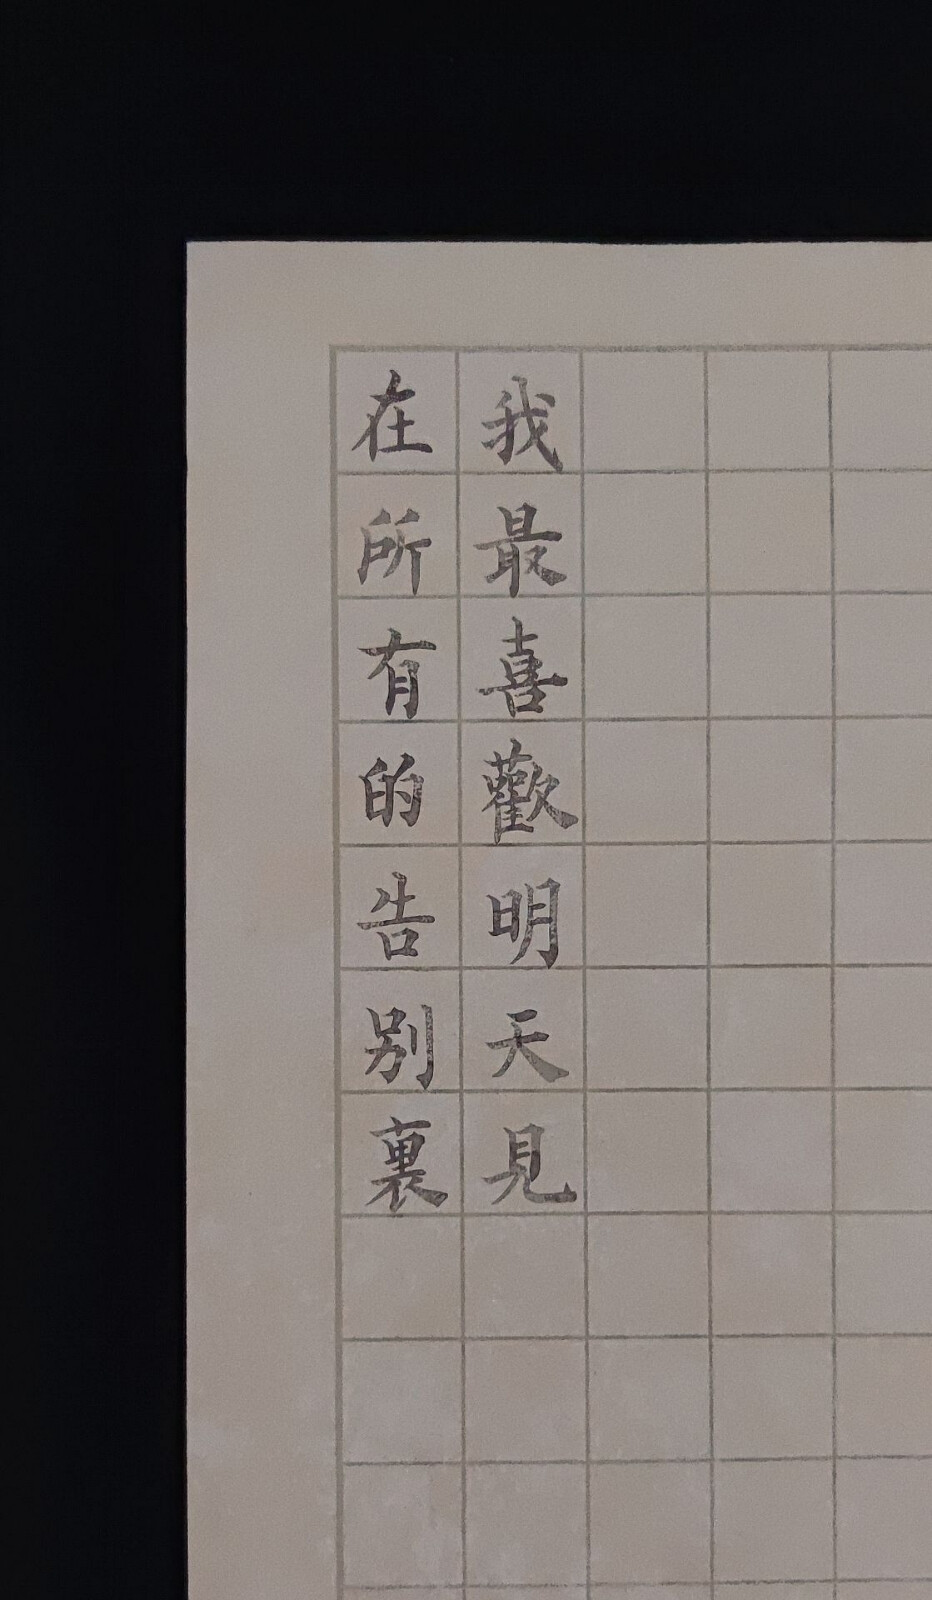 在所有的告别裏
我最喜歡明天見